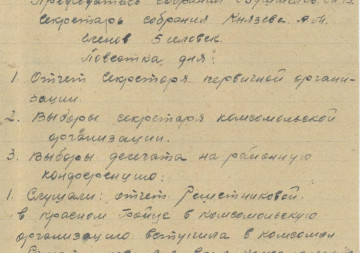 Председатель собрания
Секретарь собрания Князева А.М.
членов 5 человек.
Повестка дня:
1. Отчет секретаря первичной органи-
зации.
2. Выборы секретаря комсомольской
организации.
3. Выборы делегата на районную
конференцию.
1. Слушали: отчет Решетниковой.
в красном Бойце в комсомольскую
организацию вступила в комсомол